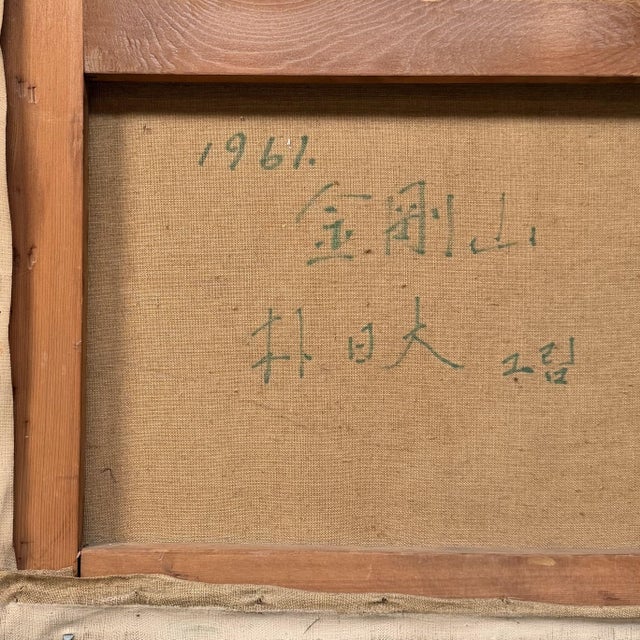 1961.
金剛山
朴日大 그림